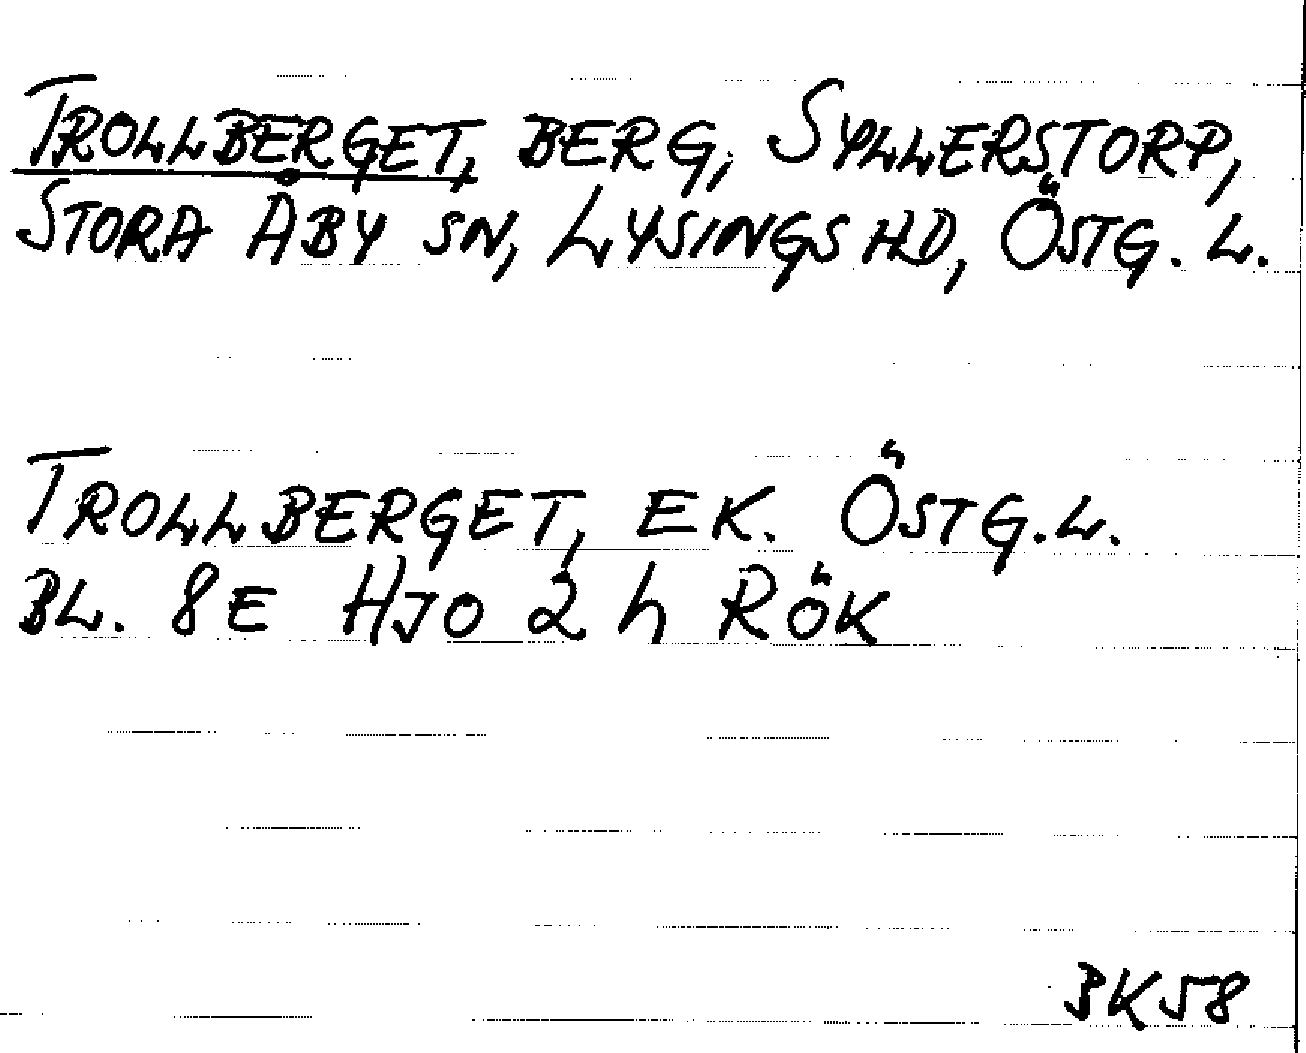 TROLLBERGET, BERG, SYLLERSTORP,
STORA ÅBY SN, LYSINGS HD, ÖSTG. L.
TROLLBERGET, EK. ÖSTG.L.
BL. 8E HJO 2 h RÖK
BK58